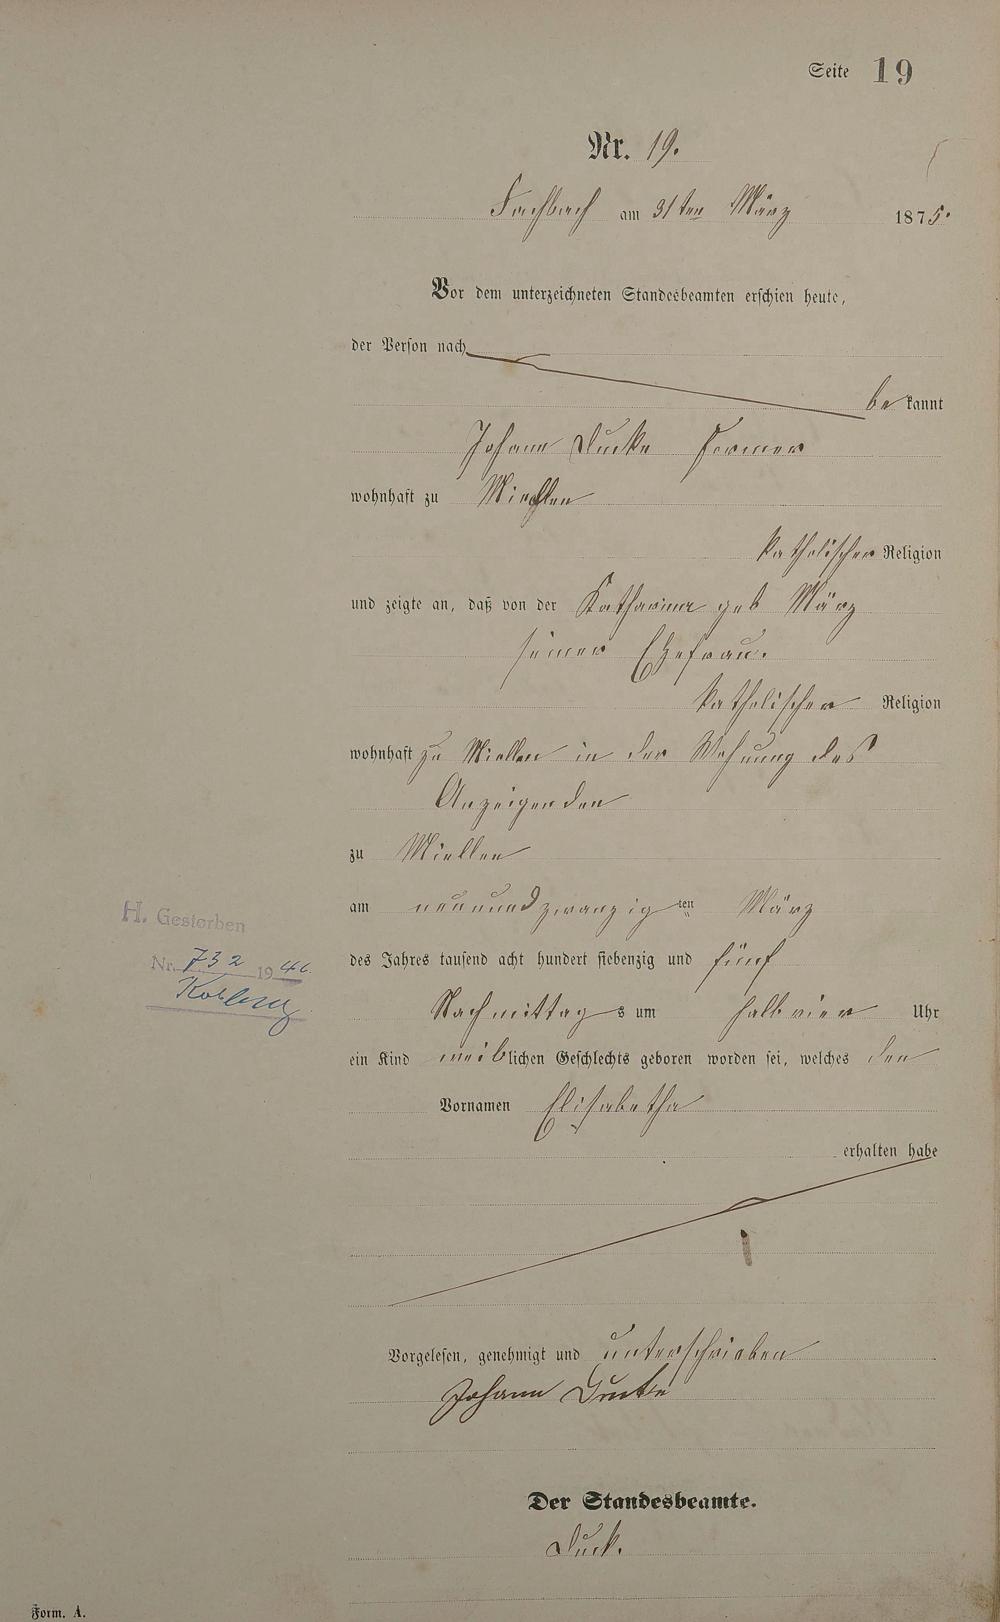 Seite 19
Nr. 19.
Fachbach am 31ten März 1875.
Vor dem unterzeichneten Standesbeamten erschien heute,
der Person nach
be kannt
Johann Former
wohnhaft zu Miellen
katholischer Religion
und zeigte an, daß von der Katharina geb März
seiner Ehefrau.
katholischer Religion
wohnhaft zu Miellen in der Wohnung des
Anzeigenden
zu Miellen
am neunundzwanzig ten März
des Jahres tausend acht hundert siebenzig und fünf
Nachmittag s um halb vier Uhr
ein Kind weiblichen Geschlechts geboren worden sei, welches den
Vornamen Elisabetha
erhalten habe
H. Gestorben
Nr. 732 19
Koblenz
Vorgelesen, genehmigt und unterschrieben
Johann
Der Standesbeamte.
Form. A.